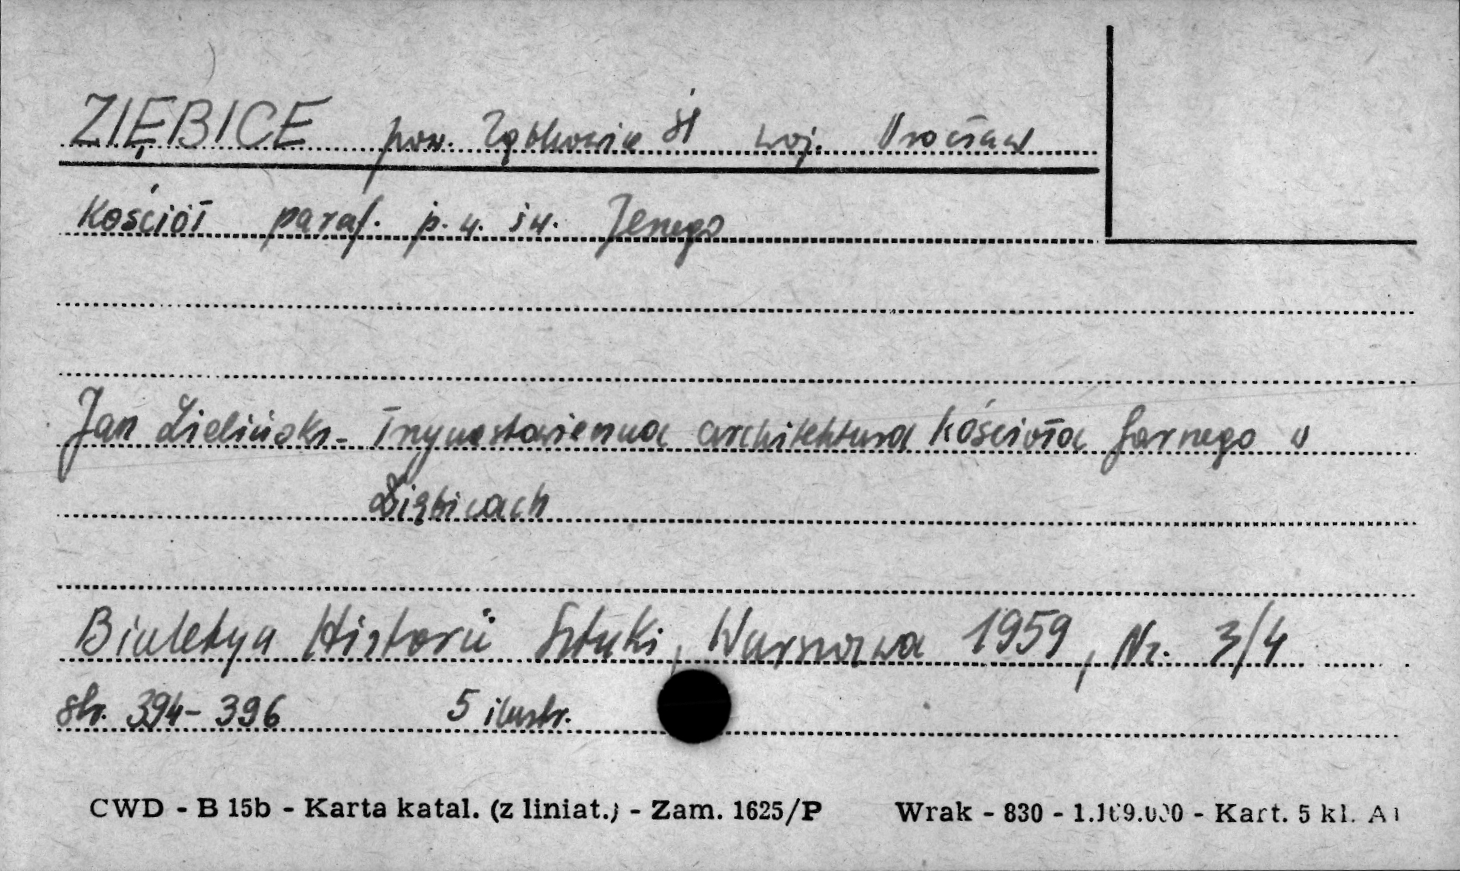 ZIĘBICE pow. Ząbkowice Śl woj. Wrocław
Kościół paraf. p.w. św. Jerzego
Jan Zieliński - Trzynastowieczna architektura kościoła farnego w
Ziębicach
Biuletyn Historii Sztuki, Warszawa 1959, Nr. 3/4
str. 394-396 5 ilustr.
CWD - B 15b - Karta katal. (z liniat.) - Zam. 1625/P Wrak - 830 - Kart. 5 kl. A1